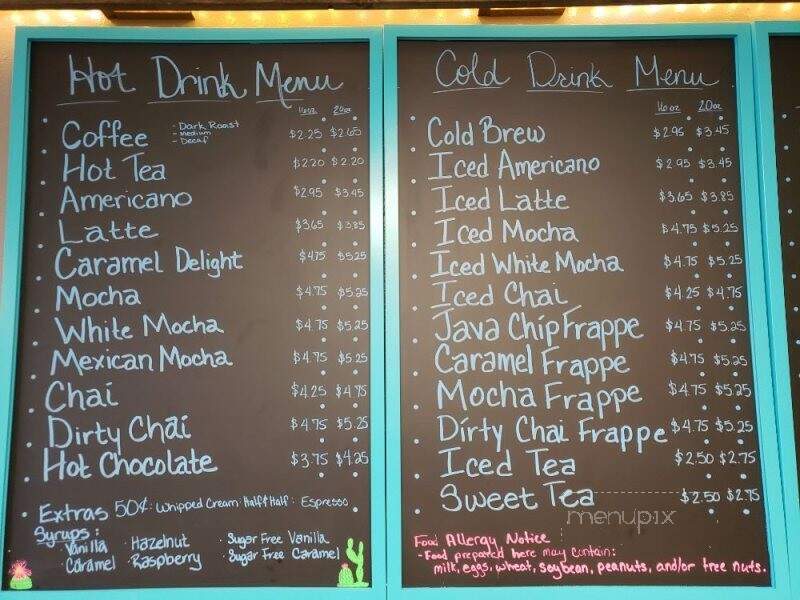 Hot Drink Menu
16oz 20oz
Coffee - Dark Roast - medium - Decaf $2.25 $2.65
Hot Tea $2.20 $2.20
Americano $2.95 $3.45
Latte $3.65 $3.85
Caramel Delight $4.75 $5.25
Mocha $4.75 $5.25
White Mocha $4.75 $5.25
Mexican Mocha $4.75 $5.25
Chai $4.25 $4.75
Dirty Chai $4.75 $5.25
Hot Chocolate $3.75 $4.25
Extras 50¢: Whipped Cream: Half & Half: Espresso
Syrups:
• Vanilla • Hazelnut • Sugar Free Vanilla
• Caramel • Raspberry • Sugar Free Caramel
Cold Drink Menu
16oz 20oz
Cold Brew $2.95 $3.45
Iced Americano $2.95 $3.45
Iced Latte $3.65 $3.85
Iced Mocha $4.75 $5.25
Iced White Mocha $4.75 $5.25
Iced Chai $4.25 $4.75
Java Chip Frappe $4.75 $5.25
Caramel Frappe $4.75 $5.25
Mocha Frappe $4.75 $5.25
Dirty Chai Frappe $4.75 $5.25
Iced Tea $2.50 $2.75
Sweet Tea $2.50 $2.75
menupix
Food Allergy Notice
- Food prepared here may contain:
milk, eggs, wheat, soybean, peanuts, and/or tree nuts.